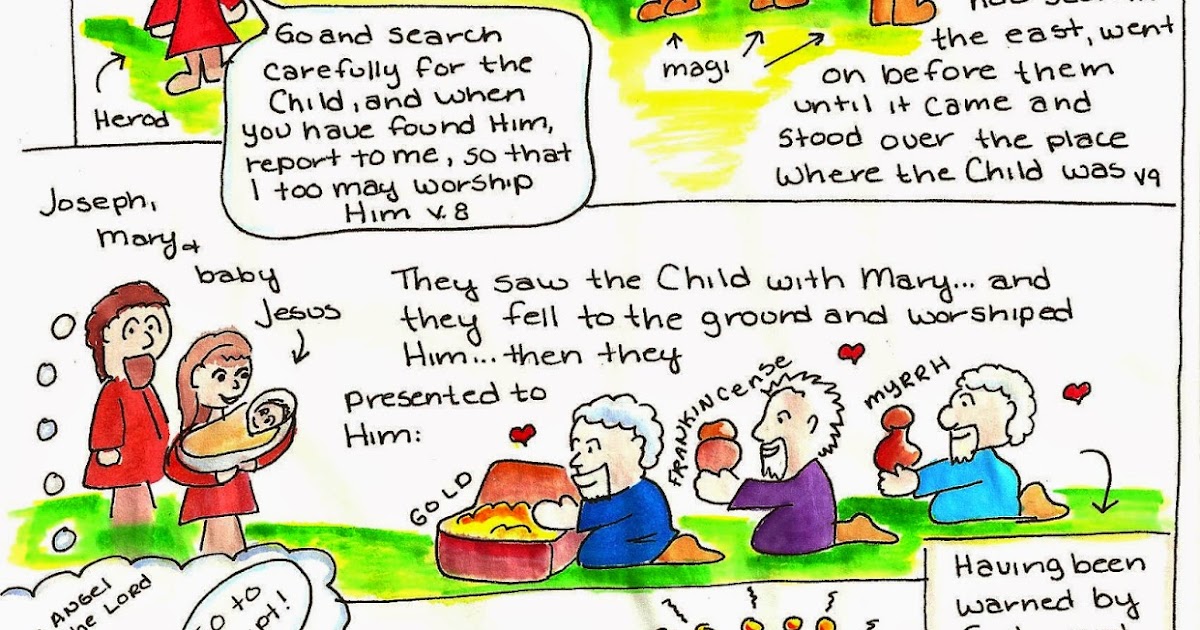 Herod
Go and search
carefully for the
Child, and when
you have found Him,
report to me, so that
I too may worship
Him v. 8
magi
the east, went
on before them
until it came and
stood over the place
where the Child was v9
Joseph,
mary &
baby
Jesus
They saw the Child with Mary... and
they fell to the ground and worshiped
Him... then they
presented to
Him:
GOLD
FRANKINCENSE
MYRRH
ANGEL
LORD
to
Having been
warned by